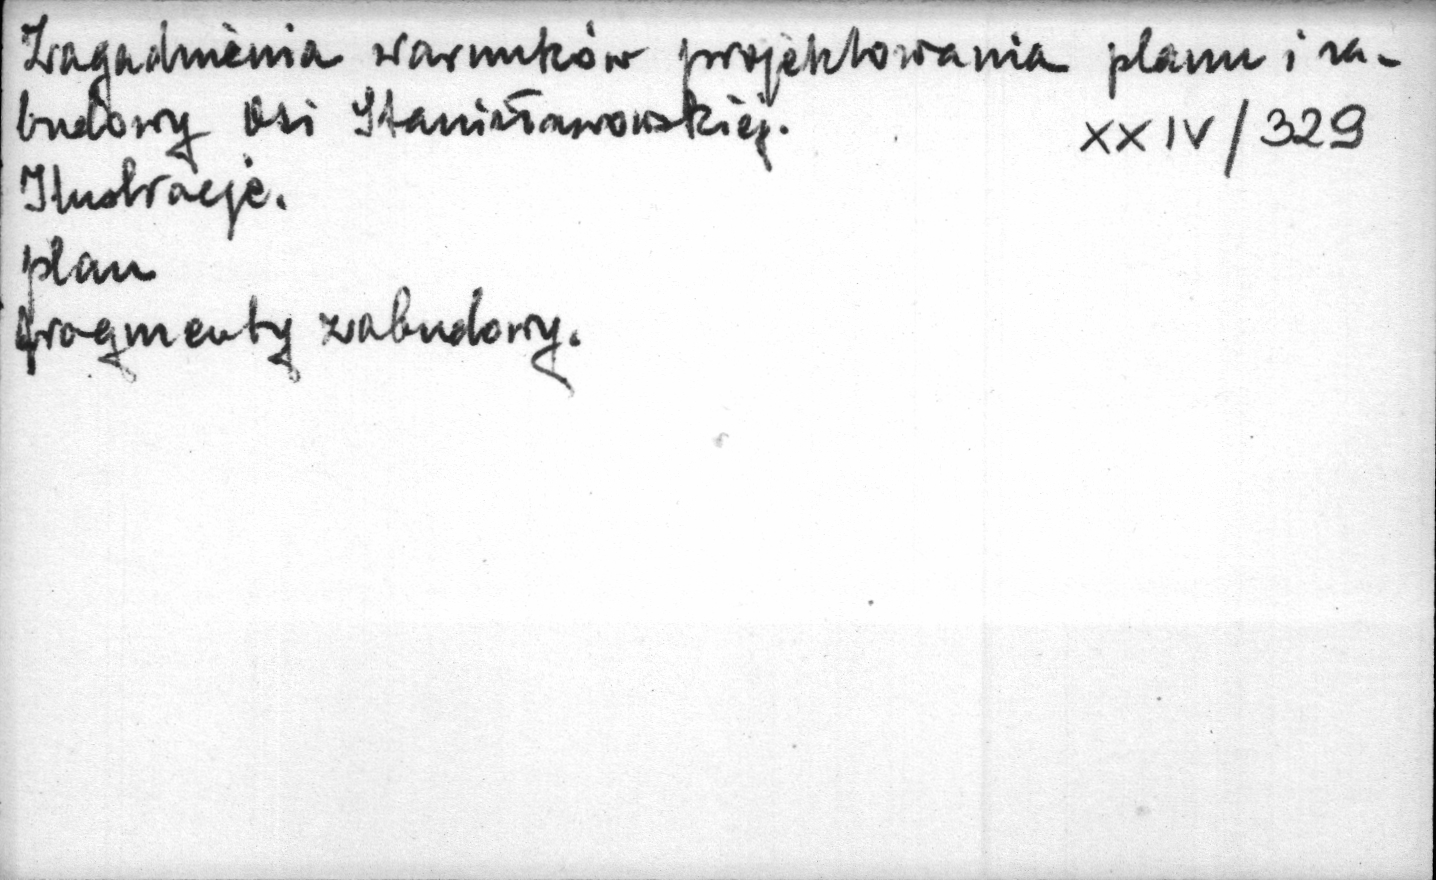 Zagadnienia warunków projektowania planu i za-
budowy Osi Stanisławowskiej. XXIV/329
Ilustracje.
plan
fragmenty zabudowy.